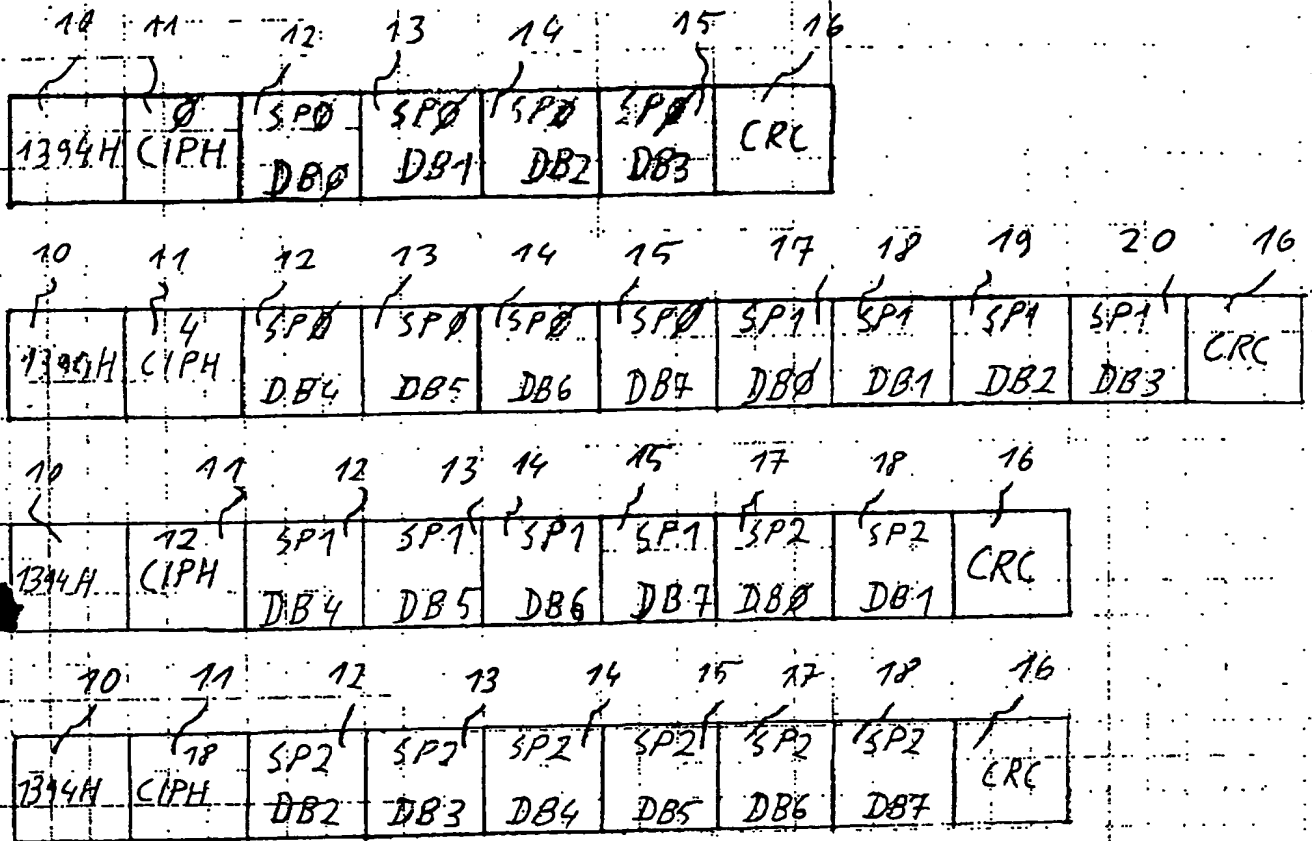 10 11 12 13 14 15 16
1394H Ø CIPH SPØ DBØ SPØ DB1 SPØ DB2 SPØ DB3 CRC
10 11 12 13 14 15 17 18 19 20 16
1394H 4 CIPH SPØ DB4 SPØ DB5 SPØ DB6 SPØ DB7 SP1 DBØ SP1 DB1 SP1 DB2 SP1 DB3 CRC
10 11 12 13 14 15 17 18 16
1394H 12 CIPH SP1 DB4 SP1 DB5 SP1 DB6 SP1 DB7 SP2 DBØ SP2 DB1 CRC
10 11 12 13 14 15 17 18 16
1394H 18 CIPH SP2 DB2 SP2 DB3 SP2 DB4 SP2 DB5 SP2 DB6 SP2 DB7 CRC